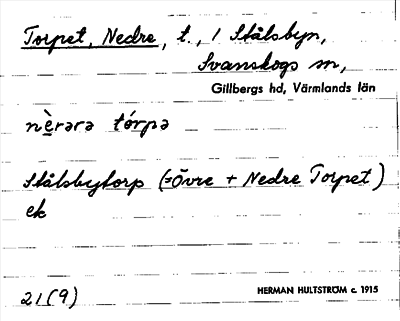 Torpet, Nedre, t., / Stålsbyn,
Svanskogs sn,
Gillbergs hd, Värmlands län
nèrərə tórpə
Stålsbytorp (=Övre + Nedre Torpet)
ek
21(9)
HERMAN HULTSTRÖM c. 1915